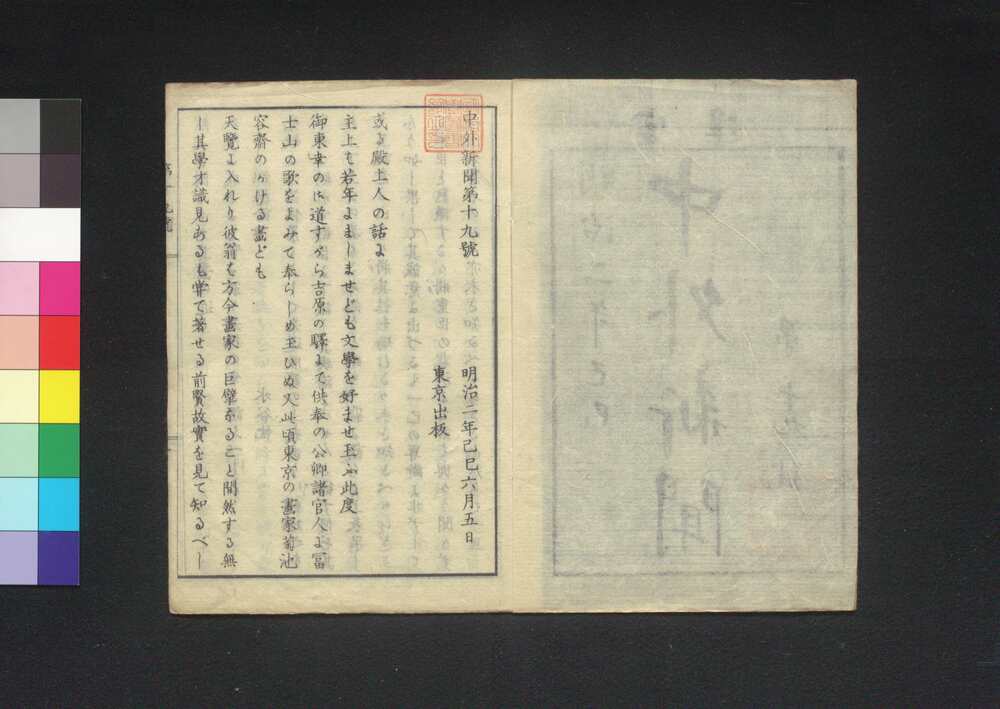 中外新聞第十九號　明治二年己巳六月五日
東京出板
或る殿上人の話よ
主上も若年よましませども文學を好ませ玉ふ此度
御東幸の道すがら吉原の驛よて供奉の公卿諸官人よ冨
士山の歌をよみて奉らしめ玉ひぬ又此頃東京の畫家菊池
容齋のかける畫ども
天覽よ入れり彼翁も方今畫家の巨擘なること間然する無
し其學才識見あるも甞て著せる前賢故實を見て知るべし